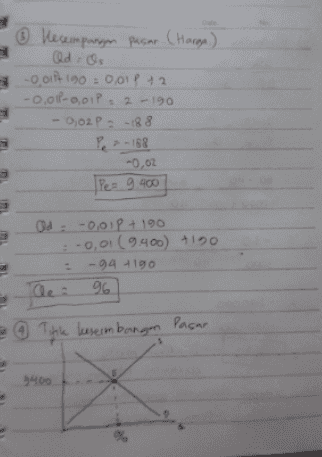 ③ Keseimpangan pasar (Harga)
Qd = Qs
-0,01P+190 = 0,01P +2
-0,01P-0,01P = 2 -190
-0,02P = -188
Pe = -188
-0,02
Pe = 9.400
Qd = -0,01P + 190
= -0,01 (9.400) +190
= -94 +190
Qe = 96
④ Titik keseimbangan Pasar
S
9400
E
D
96
Q